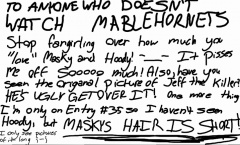 TO ANYONE WHO DOESN'T
WATCH MABLEHORNETS
Stop fangirling over how much you
"love" Masky and Hoody! -___- It pisses
Me off Sooooo much! Also, have you
seen the Original Picture of Jeff the Killer?
HE'S UGLY GET OVER IT! One more thing
I'm only on Entry #35 so I haven't seen
Hoody, but MASKYS HAIR IS SHORT!
I only saw pictures
of it long :(-_-)